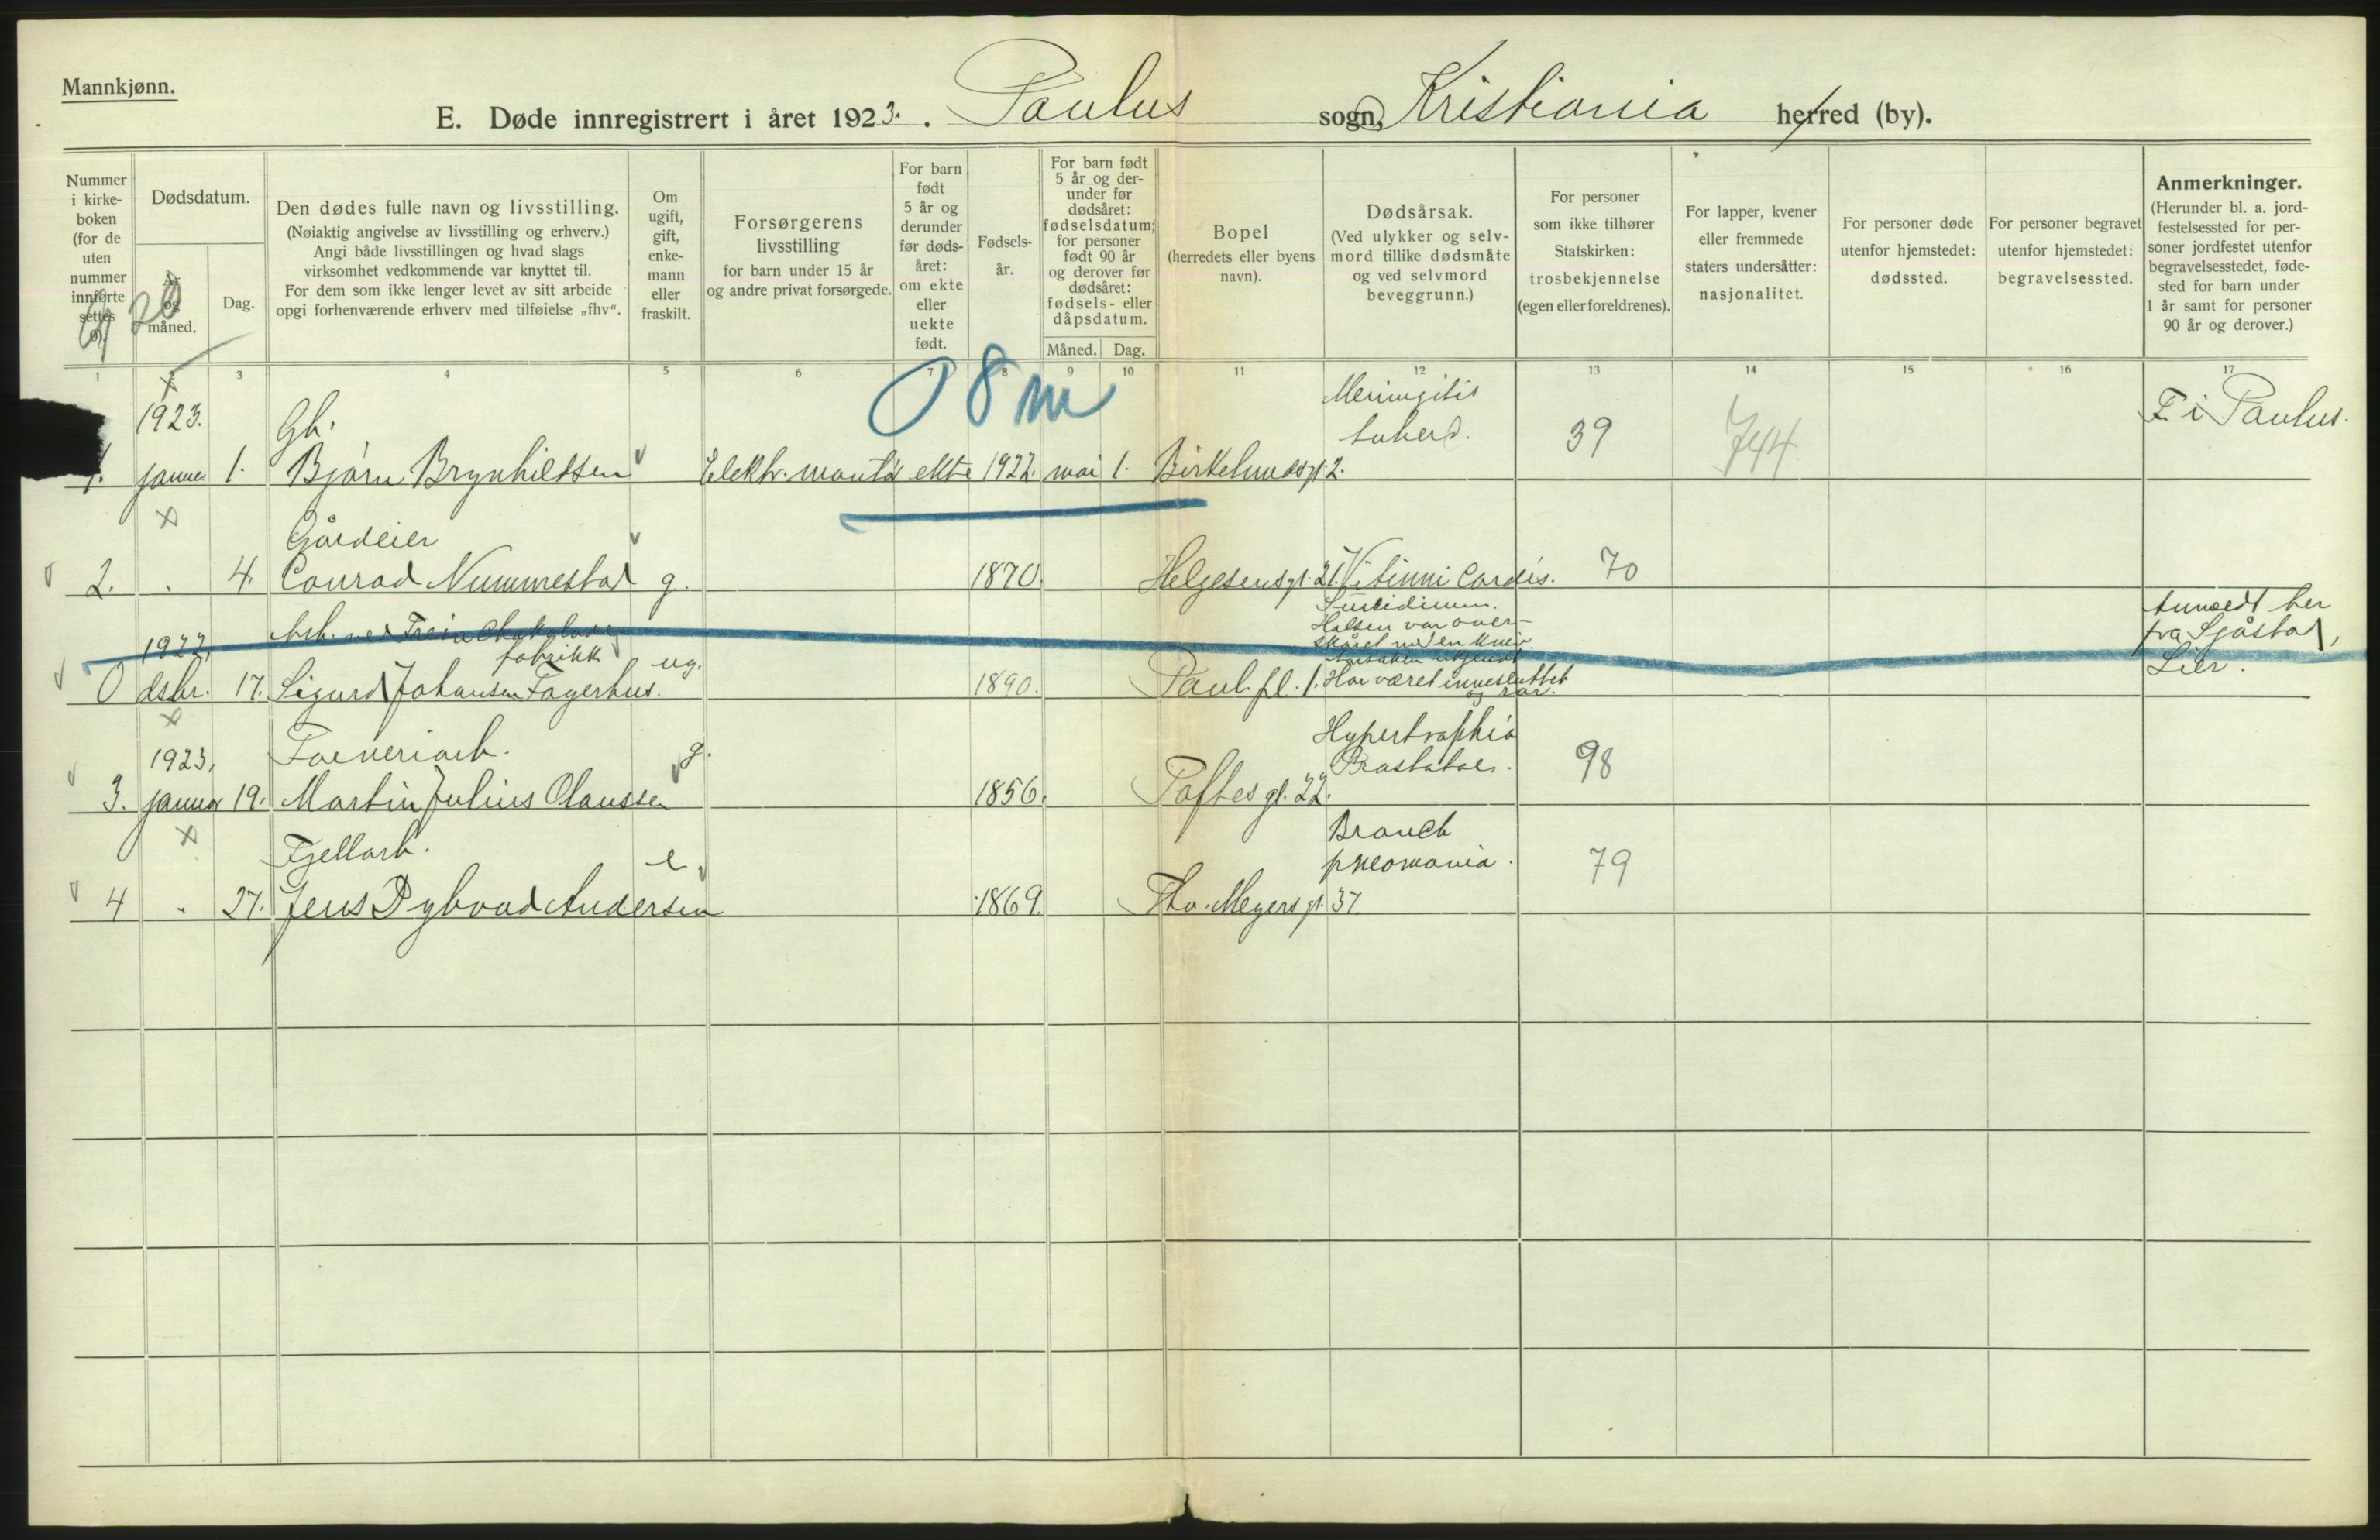 Mannkjønn.
E. Døde innregistrert i året 1923. Paulus sogn, Kristiania herred (by).
Nummer i kirke- boken (for de uten nummer innførte settes 0).
Dødsdatum.
År og måned.
Dag.
Den dødes fulle navn og livsstilling.
(Nøiaktig angivelse av livsstilling og erhverv.)
Angi både livsstillingen og hvad slags
virksomhet vedkommende var knyttet til.
For dem som ikke lenger levet av sitt arbeide
opgi forhenværende erhverv med tilføielse „fhv“.
Om ugift, gift, enke- mann eller fraskilt.
Forsørgerens
livsstilling
for barn under 15 år
og andre privat forsørgede.
For barn født 5 år og derunder før døds- året: om ekte eller uekte født.
Fødsels- år.
For barn født 5 år og der- under før dødsåret: fødselsdatum; for personer født 90 år og derover før dødsåret: fødsels- eller dåpsdatum.
Måned. Dag.
Bopel
(herredets eller byens
navn).
Dødsårsak.
(Ved ulykker og selv-
mord tillike dødsmåte
og ved selvmord
beveggrunn.)
For personer
som ikke tilhører
Statskirken:
trosbekjennelse
(egen eller foreldrenes).
For lapper, kvener
eller fremmede
staters undersåtter:
nasjonalitet.
For personer døde
utenfor hjemstedet:
dødssted.
For personer begravet
utenfor hjemstedet:
begravelsessted.
Anmerkninger.
(Herunder bl. a. jord-
festelsessted for per-
soner jordfestet utenfor
begravelsesstedet, føde-
sted for barn under
1 år samt for personer
90 år og derover.)
1 2 3 4 5 6 7 8 9 10 11 12 13 14 15 16 17
08 m
1923. Gb. Meningitis F. i Paulus.
tuberd. 39 744
1. januar 1. Bjørn Brynhildsen Elektr. montør ekte 1922. mai 1. Birkelundsgt. 2.
Gårdeier
2. " 4. Conrad Nummestad g. 1870. Helgesensgt. 21. Vitium Cordis. 70
1922. Arb. ved Freia Chokolade
fabrikk ug.
Suicidium.
Halsen var over-
skåret med en kniv.
Årsaken ukjendt
Anmeldt her
fra Sjåstad,
Lier.
0 desbr. 17. Sigurd Johansen Fagerhus. 1890. Paul. pl. 1. Har været innesluttet
og rar.
1923, Farveriarb. g. Hypertrophia
Prostatae. 98
3. januar 19. Martin Julius Olaussen 1856. Toftes gt. 22.
Fjellarb. e. Bronch
pneomonia. 79
4 " 27. Jens Dybvad Andersen 1869. Thv. Meyers gt. 37